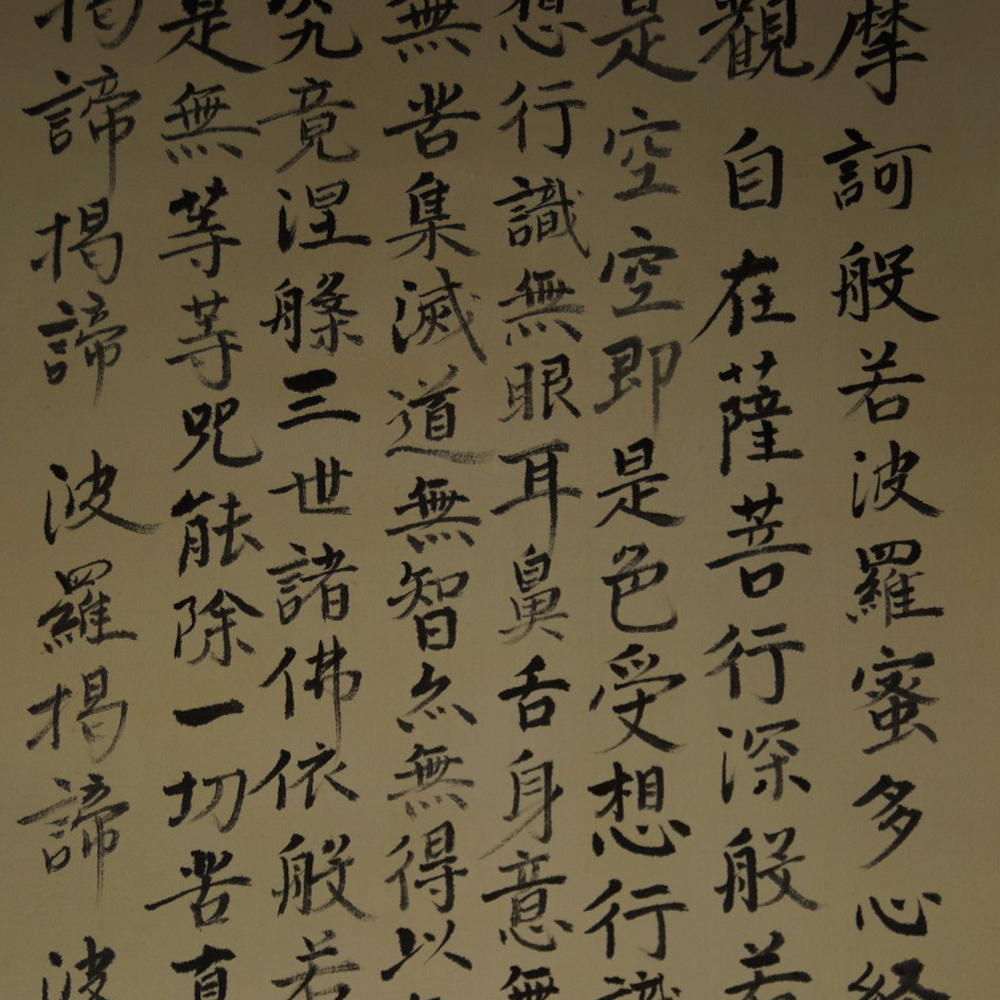 摩訶般若波羅蜜多心経
觀自在薩菩行深般若
是空空即是色受想行識
想行識無眼耳鼻舌身意無
無苦集滅道無智亦無得以
究竟涅槃三世諸佛依般若
是無等等咒能除一切苦真
揭諦揭諦波羅揭諦波